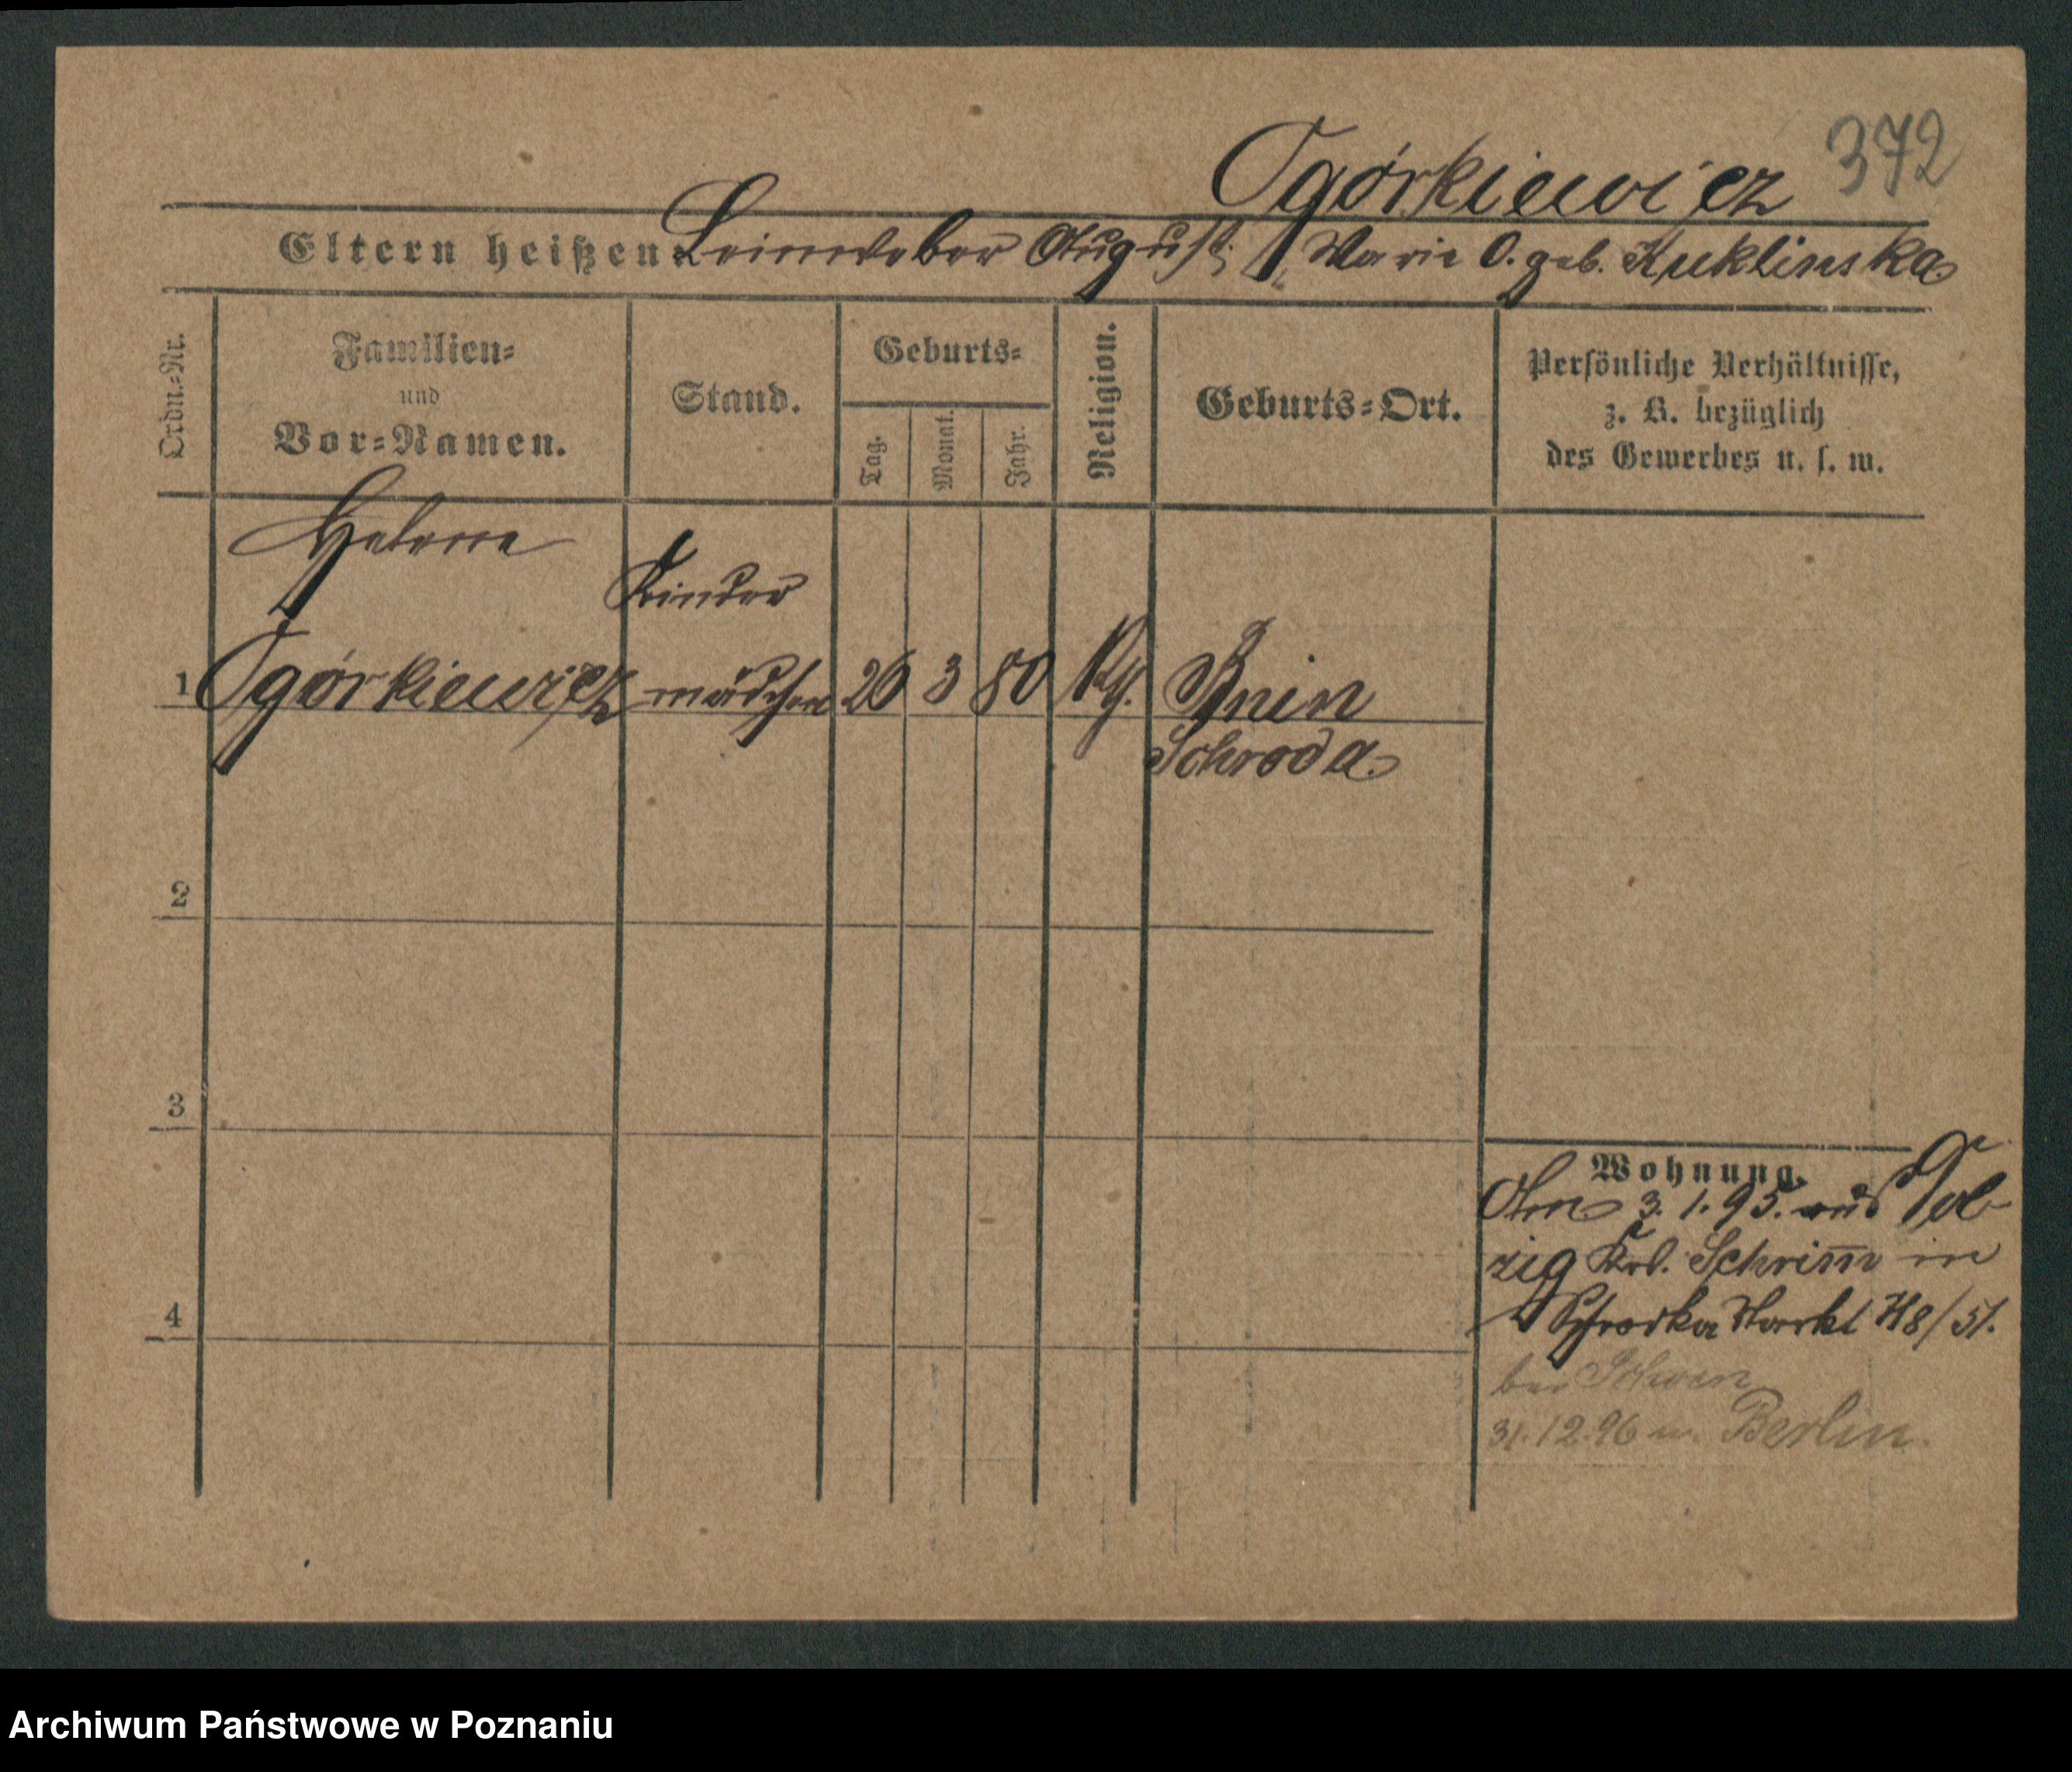 372
Ogórkiewicz
Eltern heißen Leinweber August, Marie O. geb. Kuklinska
Ordn.-Nr.
Familien-
und
Vor-Namen.
Stand.
Geburts-
Tag.
Monat.
Jahr.
Religion.
Geburts-Ort.
Persönliche Verhältnisse,
z. B. bezüglich
des Gewerbes u. s. w.
Helene
Kinder
1 Ogórkiewicz mädchen 26 3 80 Kth. Bnin
Schroda
2
3
4
Wohnung.
Am 3.1.95. aus
zig Krs. Schrim in
Schrodka Markt 48/51.
bei
31.12.96 n. Berlin.
Archiwum Państwowe w Poznaniu